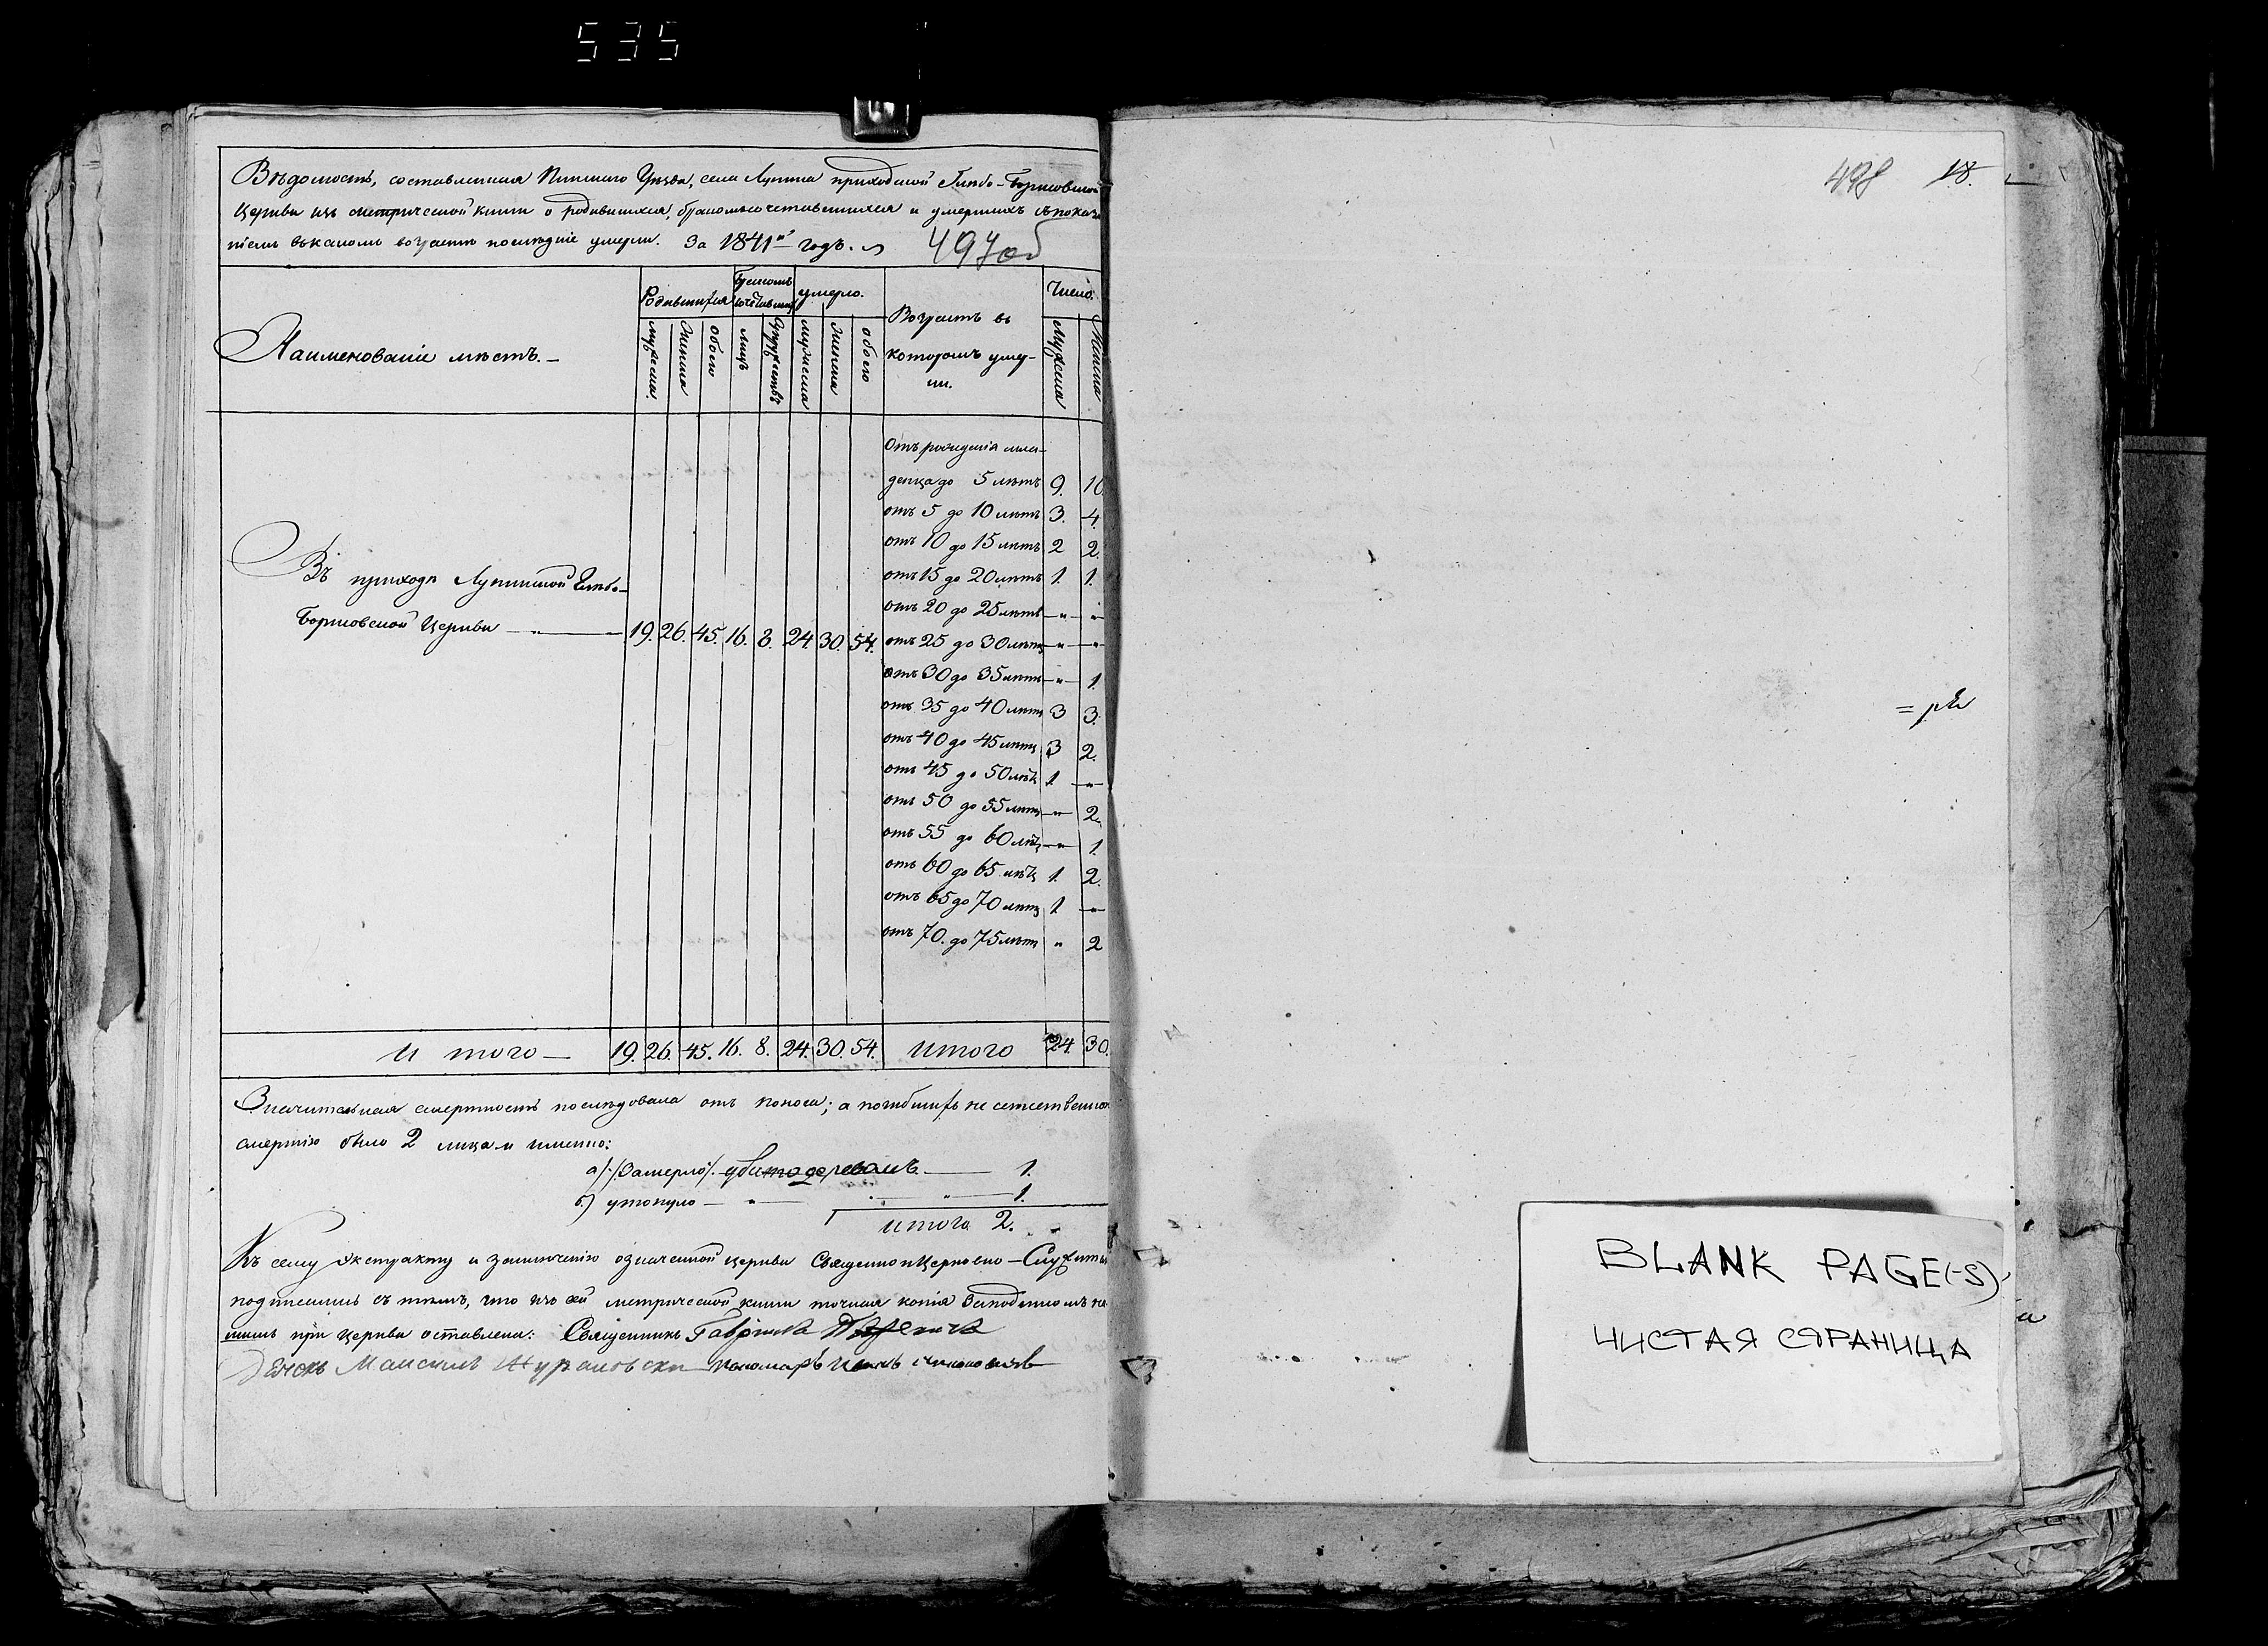 535
Вѣдомость, составленная Пинскаго Уѣзда, села Лунина приходской Глѣбо-Борисовской
Церкви изъ метрической книги о родившихся, бракомъ сочетавшихся и умершихъ съ показа
ніемъ въ какомъ возрастѣ послѣдніе умерли. За 1841й годъ.
497об
Наименованіе мѣстъ.
Родившихся
Бракомъ сочетавших
умерло.
Возрастъ въ
которомъ умер-
ли.
Число.
мужеска.
Женска
обоего
лицъ
Супружествъ
мужеска
женска
обоего
Мужеска
Женска
Отъ рожденія мла-
денца до 5 лѣтъ 9. 10.
отъ 5 до 10 лѣтъ 3. 4.
отъ 10 до 15 лѣтъ 2 2.
отъ 15 до 20 лѣтъ 1. 1.
отъ 20 до 25 лѣтъ — " — "
отъ 25 до 30 лѣтъ — " — "
отъ 30 до 35 лѣтъ — " — 1.
отъ 35 до 40 лѣтъ 3 3.
отъ 40 до 45 лѣтъ 3 2.
отъ 45 до 50 лѣтъ 1. — " —
отъ 50 до 55 лѣтъ — " — 2.
отъ 55 до 60 лѣтъ — " — 1.
отъ 60 до 65 лѣтъ 1. 2.
отъ 65 до 70 лѣтъ 1 — " —
отъ 70. до 75 лѣтъ " 2
Въ приходѣ Лунинской Глѣбо-
Борисовской Церкви — " — 19. 26. 45. 16. 8. 24. 30. 54.
И того — 19. 26. 45. 16. 8. 24. 30. 54. Итого 24. 30.
Значительная смертность послѣдовала отъ поноса; а погибшихъ не естественною
смертію было 2 лица и именно:
а) /:Замерло:/ убито деревомъ — 1.
б.) утонуло — " — " — 1.
итого 2.
Къ сему экстракту и заключенію означенной церкви Священно и Церковно-Служители
подписались съ тѣмъ, что изъ сей метрической книги точная копія за подписомъ на
шимъ при церкви оставлена: Священникъ Гавріилъ
Дьячокъ Максимъ Жураковски Пономарь
498 18.
BLANK PAGE(-S)
ЧИСТАЯ СТРАНИЦА